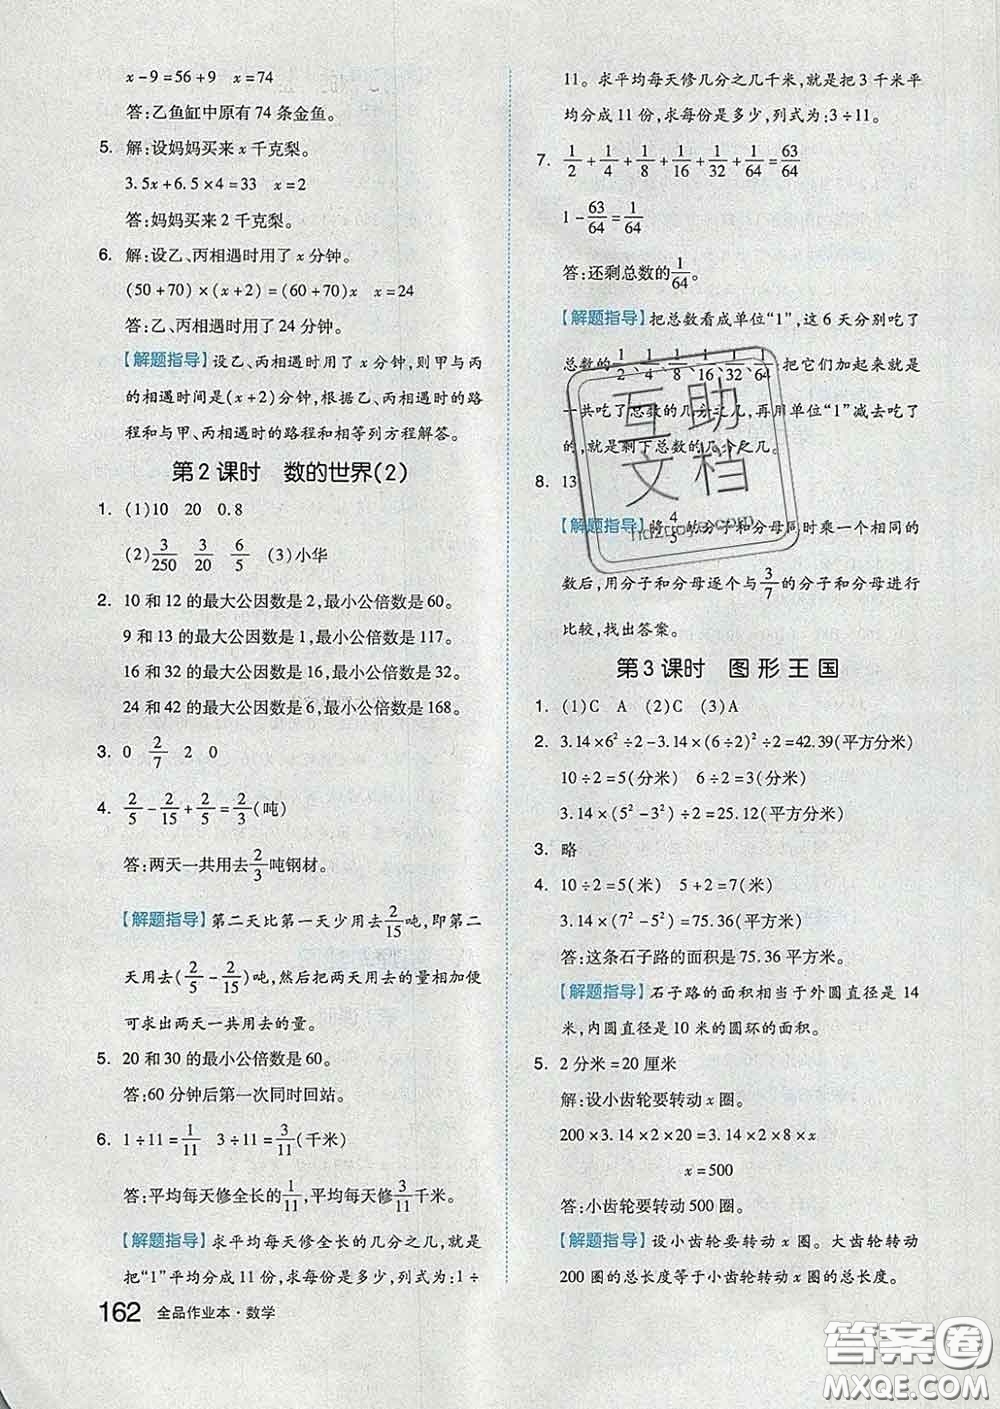 x-9=56+9　x=74
答:乙鱼缸中原有 74 条金鱼。
5. 解:设妈妈买来 x 千克梨。
3.5x+6.5×4=33　x=2
答:妈妈买来 2 千克梨。
6. 解:设乙、丙相遇时用了 x 分钟。
(50+70)×(x+2)=(60+70)x　x=24
答:乙、丙相遇时用了 24 分钟。
【解题指导】设乙、丙相遇时用了 x 分钟,则甲与丙
的相遇时间是(x+2)分钟,根据乙、丙相遇时的路
程和与甲、丙相遇时的路程和相等列方程解答。
第 2 课时　数的世界(2)
1. (1)10　20　0.8
(2)3/250　3/20　6/5　(3)小华
2. 10 和 12 的最大公因数是 2,最小公倍数是 60。
9 和 13 的最大公因数是 1,最小公倍数是 117。
16 和 32 的最大公因数是 16,最小公倍数是 32。
24 和 42 的最大公因数是 6,最小公倍数是 168。
3. 0　2/7　2　0
4. 2/5-2/15+2/5=2/3(吨)
答:两天一共用去2/3吨钢材。
【解题指导】第二天比第一天少用去2/15吨,即第二
天用去(2/5-2/15)吨,然后把两天用去的量相加便
可求出两天一共用去的量。
5. 20 和 30 的最小公倍数是 60。
答:60 分钟后第一次同时回站。
6. 1÷11=1/11　3÷11=3/11(千米)
答:平均每天修全长的1/11,平均每天修3/11千米。
【解题指导】求平均每天修全长的几分之几,就是
把“1”平均分成 11 份,求每份是多少,列式为:1÷
162 全品作业本·数学
11。求平均每天修几分之几千米,就是把 3 千米平
均分成 11 份,求每份是多少,列式为:3÷11。
7. 1/2+1/4+1/8+1/16+1/32+1/64=63/64
1-63/64=1/64
答:还剩总数的1/64。
【解题指导】把总数看成单位“1”,这 6 天分别吃了
总数的1/2、1/4、1/8、1/16、1/32、1/64,把它们加起来就是
一共吃了总数的几分之几,再用单位“1”减去吃了
的,就是剩下总数的几分之几。
8. 13
【解题指导】将4/5的分子和分母同时乘一个相同的
数后,用分子和分母逐个与3/7的分子和分母进行
比较,找出答案。
第 3 课时　图 形 王 国
1. (1)C　A　(2)C　(3)A
2. 3.14×6²÷2-3.14×(6÷2)²÷2=42.39(平方分米)
10÷2=5(分米)　6÷2=3(分米)
3.14×(5²-3²)÷2=25.12(平方分米)
3. 略
4. 10÷2=5(米)　5+2=7(米)
3.14×(7²-5²)=75.36(平方米)
答:这条石子路的面积是 75.36 平方米。
【解题指导】石子路的面积相当于外圆直径是 14
米,内圆直径是 10 米的圆环的面积。
5. 2 分米=20 厘米
解:设小齿轮要转动 x 圈。
200×3.14×2×20=3.14×2×8×x
x=500
答:小齿轮要转动 500 圈。
【解题指导】设小齿轮要转动 x 圈。大齿轮转动
200 圈的总长度等于小齿轮转动 x 圈的总长度。
互助
文档
答案圈
MXQE.COM